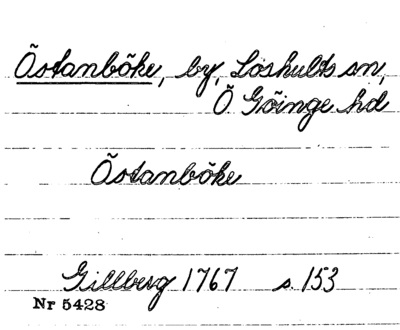 Östanböke, by, Loshults sn,
Ö Göinge hd
Östanböke
Gillberg 1767 s. 153
Nr 5428